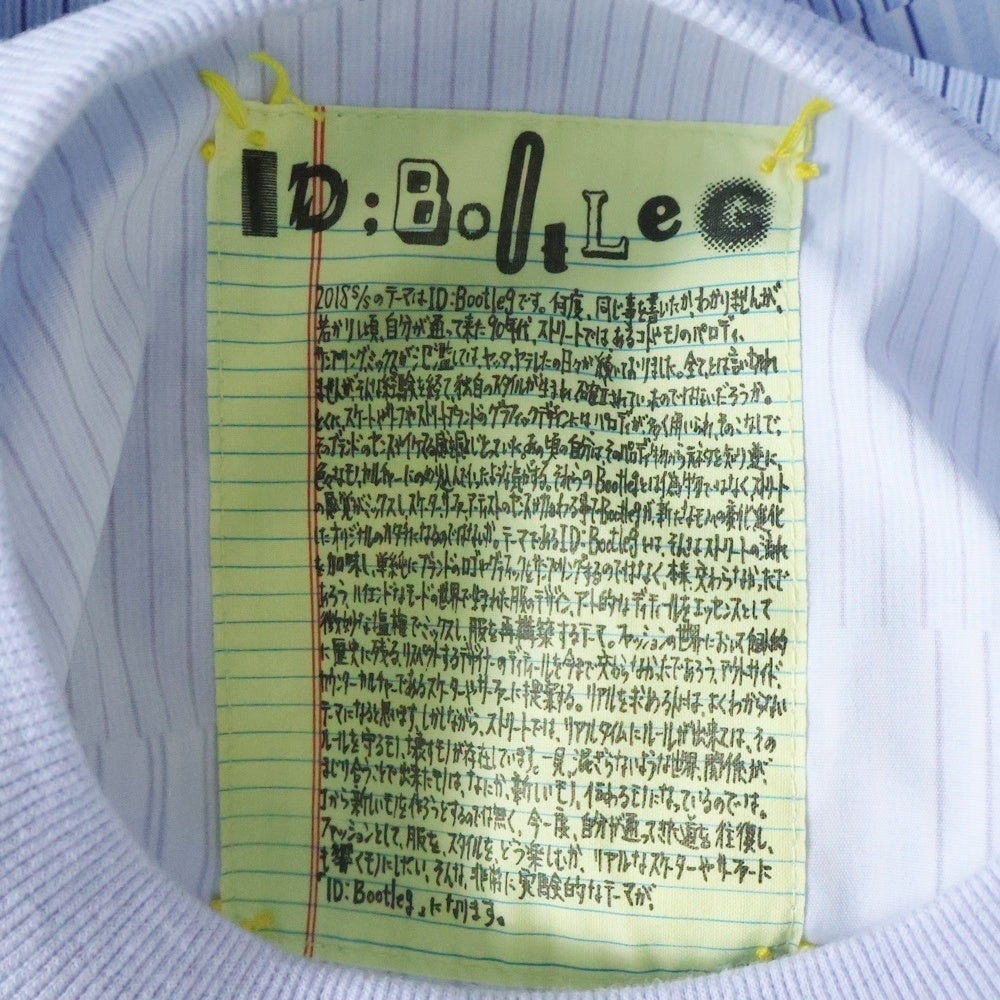 ID;BootLeG
2018 s/sのテーマはID:Bootlegです。何度、同じ事を書いたか、わかりませんが、
若かりし頃、自分が通って来た90年代、ストリートではあるコトやモノのパロディ、
サンプリング、ミックスが氾濫していは、ヤッタ、ヤラレタの日々が続いておりました。全てとは言い切れ
ませんが、そんな経験を経て、独自のスタイルが生まれ、確立されていったのではないだろうか。
とくに、スケートやサーフやストリートブランドのグラフィックデザインには、パロディが多く用いられ、そのこなしで、
そのブランドのセンスやイケてる感を感じとっていた。あの頃の自分はそのパロディ物から元ネタを知り、逆に
色々なモノ、カルチャーにのめり込んでいったような気がする。そもそもBootlegとは偽物ではなくストリート
の感覚がミックスし、スケーター、サーファー、アーティストのセンスが加わる事でBootlegが、新たなモノへの劇化進化
したオリジナルのカタチになるのではないか。テーマであるID:Bootlegでは、そんなストリートの流れ
を加味し、単純にブランドのロゴやグラフィックをサンプリングするのではなく、本来、交わらなかったで
あろう、ハイエンドなモードの世界で生まれた服のデザイン、アート的なディテールをエッセンスとして
微妙な塩梅でミックスし、服を再構築するテーマ。ファッションの世界において個人的
に歴史に残る、リスペクトするデザイナーのディテールを今まで交わらなかったであろう、アウトサイド、
カウンターカルチャーであるスケーターやサーファーに提案する。リアルを求める人には、よくわからない
テーマになると思います。しかしながら、ストリートでは、リアルタイムにルールが出来ては、その
ルールを守るモノ、壊すモノが存在しています。一見、混ざらないような世界、関係が、
まじり合うことで出来たモノは、なにか、新しいモノ、伝わるモノになっているのでは。
1から新しいモノを作ろうとするのでは無く、今一度、自分が通ってきた道を往復し、
ファッションとして、服を、スタイルを、どう楽しむか、リアルなスケーターやサーファーに
も響くモノにしたい。そんな、非常に実験的なテーマが、
「ID:Bootleg」になります。